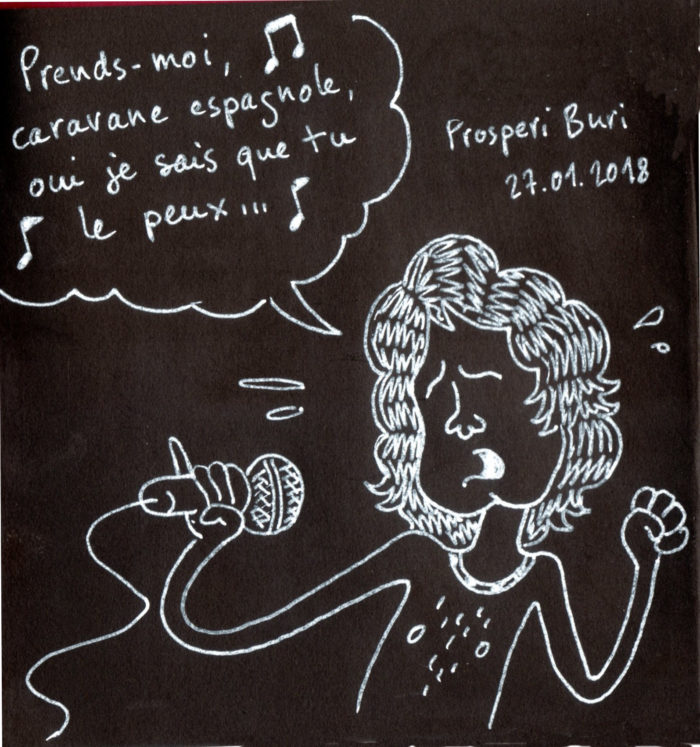 Prends-moi,
caravane espagnole,
oui je sais que tu
le peux...
Prosperi Buri
27.01.2018